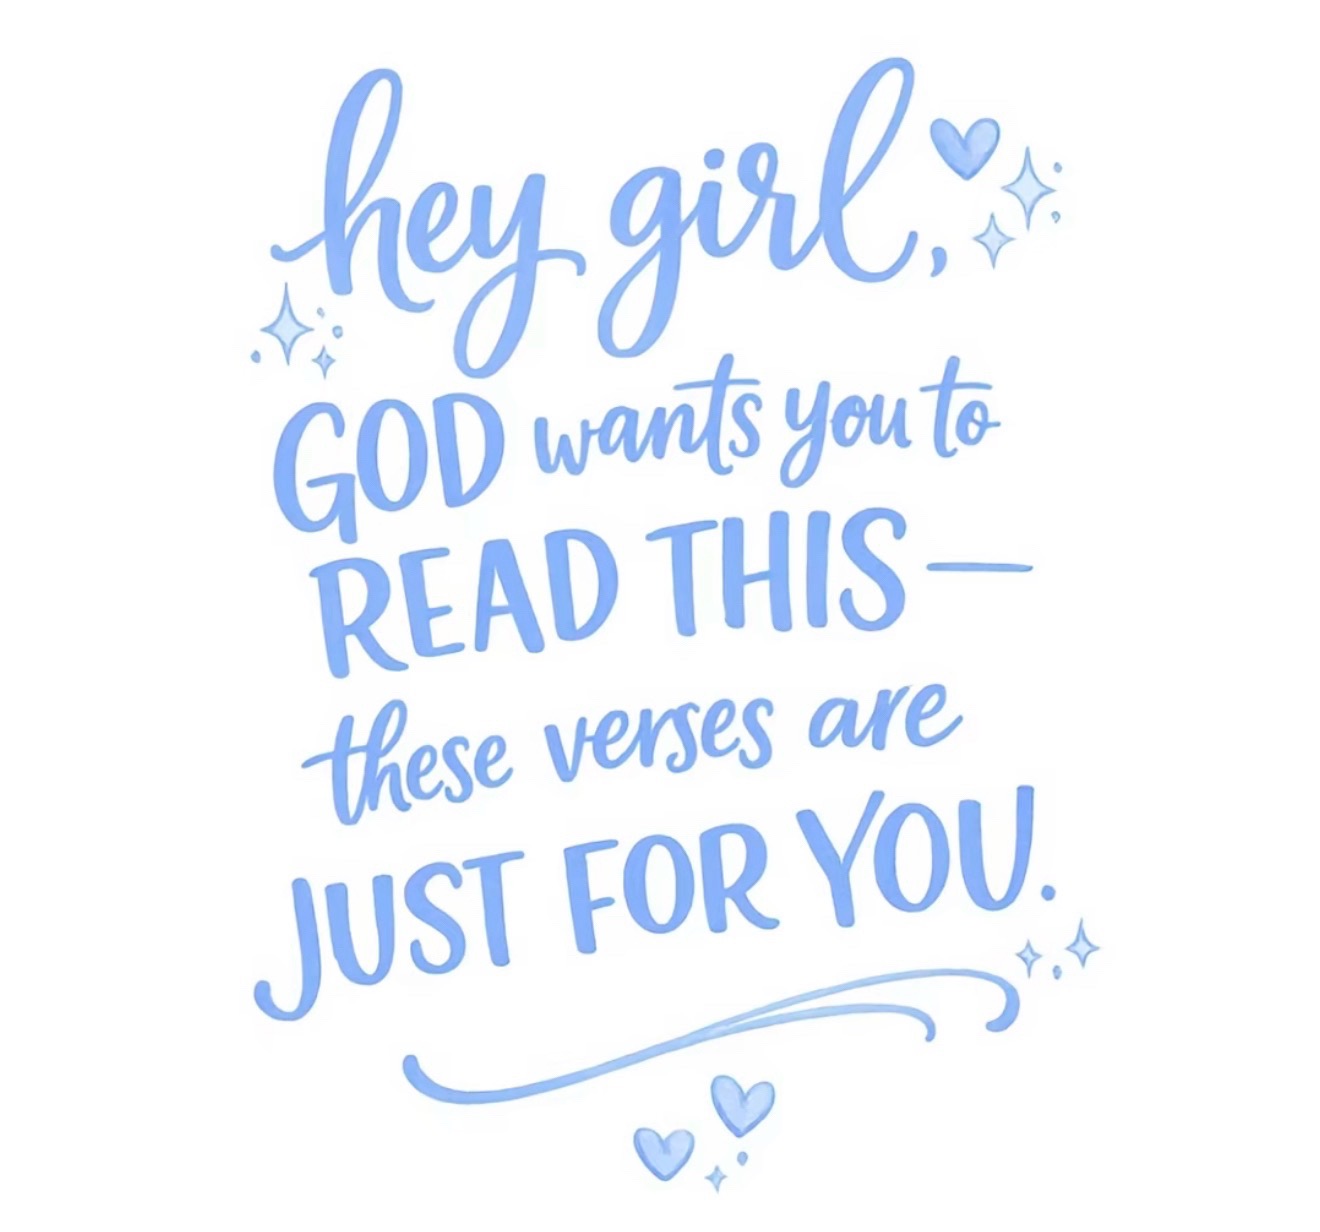 hey girl,
GOD wants you to
READ THIS—
these verses are
JUST FOR YOU.